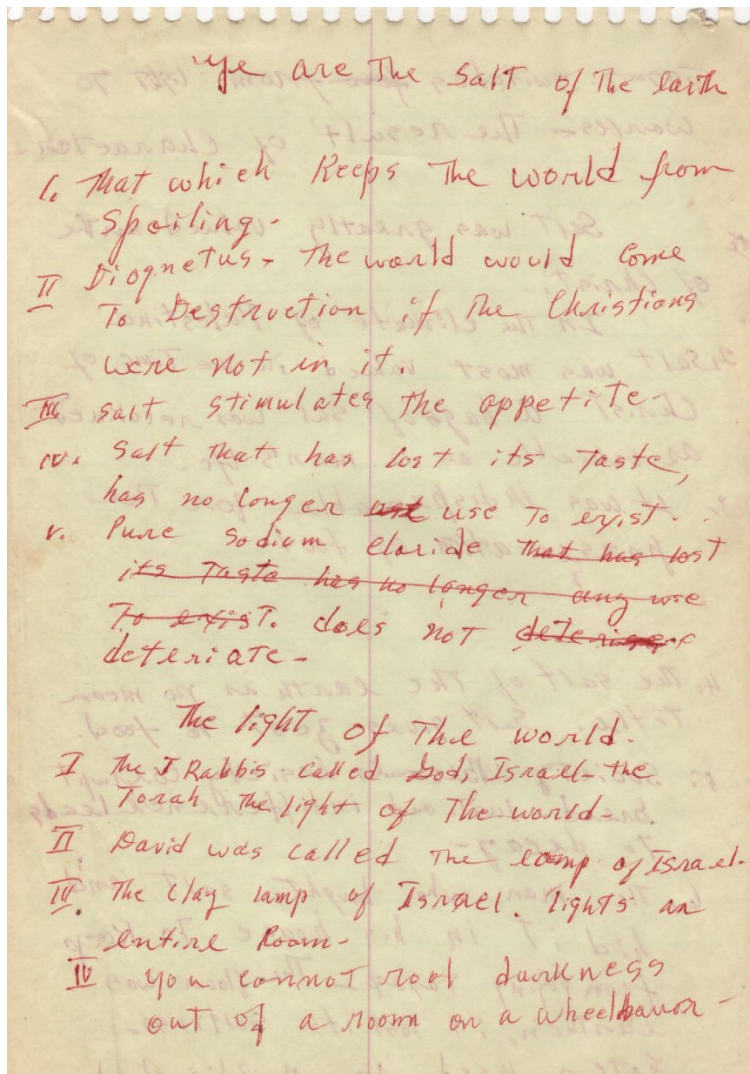 "Ye are The Salt of The Earth
I. That which Keeps The world from
Spoiling-
II Diognetus- The world would Come
To Destruction if The Christians
were not in it.
III Salt stimulates The appetite-
IV. Salt That has lost its Taste,
has no longer use To exist.
V. Pure Sodium cloride That has lost
its Taste has no longer any use
To exist. does not
deteriate-
The light of The world.
I The J Rabbis called God, Israel-the
Torah The light of The world-.
II David was called The lamp of Israel-
IV. The Clay lamp of Israel. lights an
entire Room-
IV You cannot root darkness
out of a room on a wheelbavor-